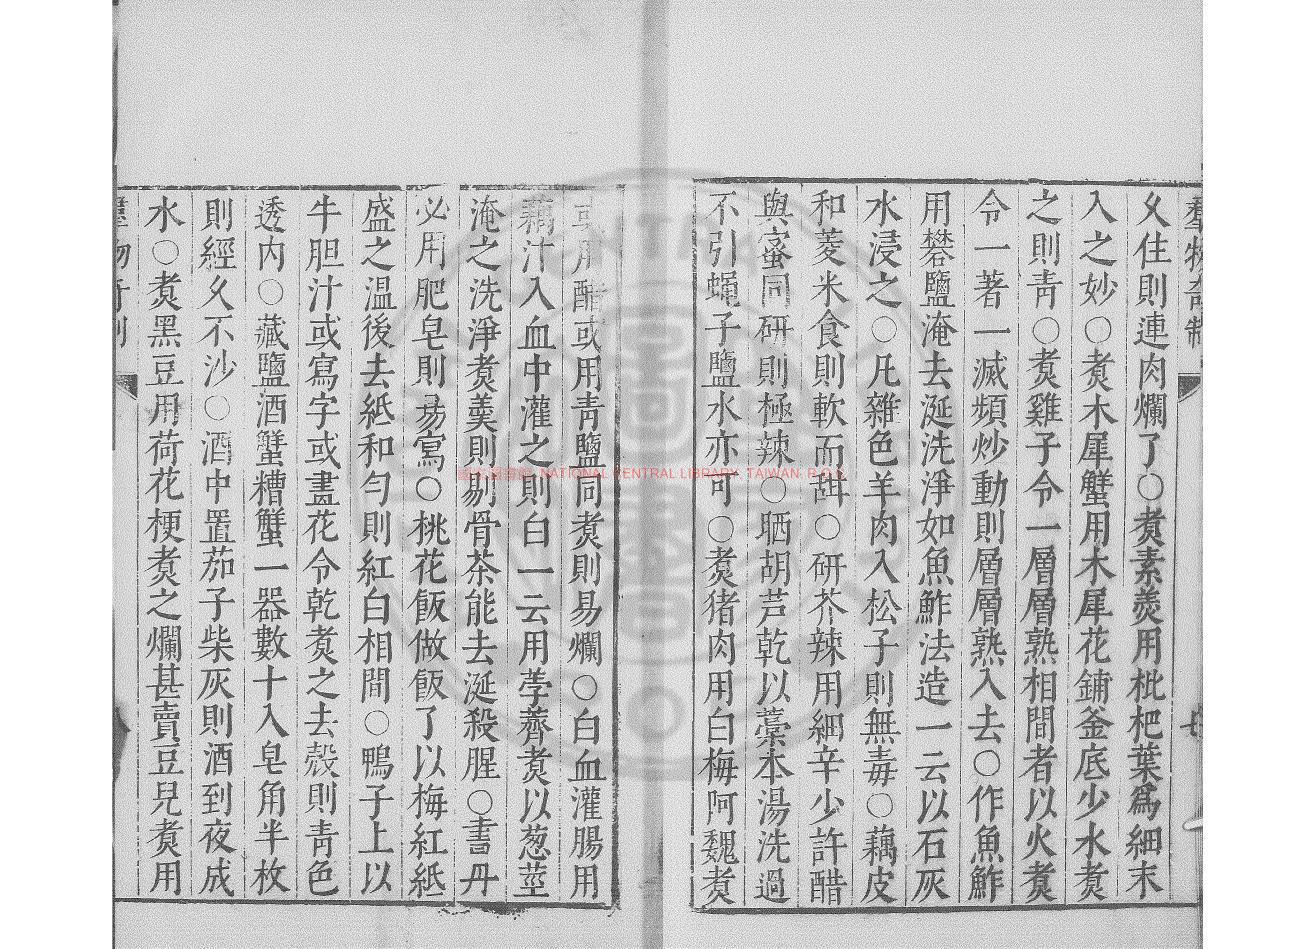 羣物奇制
久住則連肉爛了○煑素羮用枇杷葉爲細末
入之妙○煑木犀蟹用木犀花鋪釜底少水煑
之則青○煑雞子令一層層熟相間者以火煑
令一著一滅頻炒動則層層熟入去○作魚鮓
用礬鹽淹去涎洗淨如魚鮓法造一云以石灰
水浸之○凡雜色羊肉入松子則無毒○藕皮
和菱米食則軟而甜○研芥辣用細辛少許醋
與蜜同研則極辣○晒胡芦乾以藁本湯洗過
不引蠅子鹽水亦可○煑猪肉用白梅阿魏煑
或用醋或用青鹽同煑則易爛○白血灌腸用
藕汁入血中灌之則白一云用荸薺煑以葱莖
淹之洗淨煑羮則剔骨茶能去涎殺腥○書丹
必用肥皂則易寫○桃花飯做飯了以梅紅紙
盛之温後去紙和匀則紅白相間○鴨子上以
牛胆汁或寫字或畫花令乾煑之去殼則青色
透内○藏鹽酒蟹糟蟹一器數十入皂角半枚
則經久不沙○酒中置茄子柴灰則酒到夜成
水○煑黑豆用荷花梗煑之爛甚賣豆兒煑用
國家圖書館 NATIONAL CENTRAL LIBRARY, TAIWAN, R.O.C.